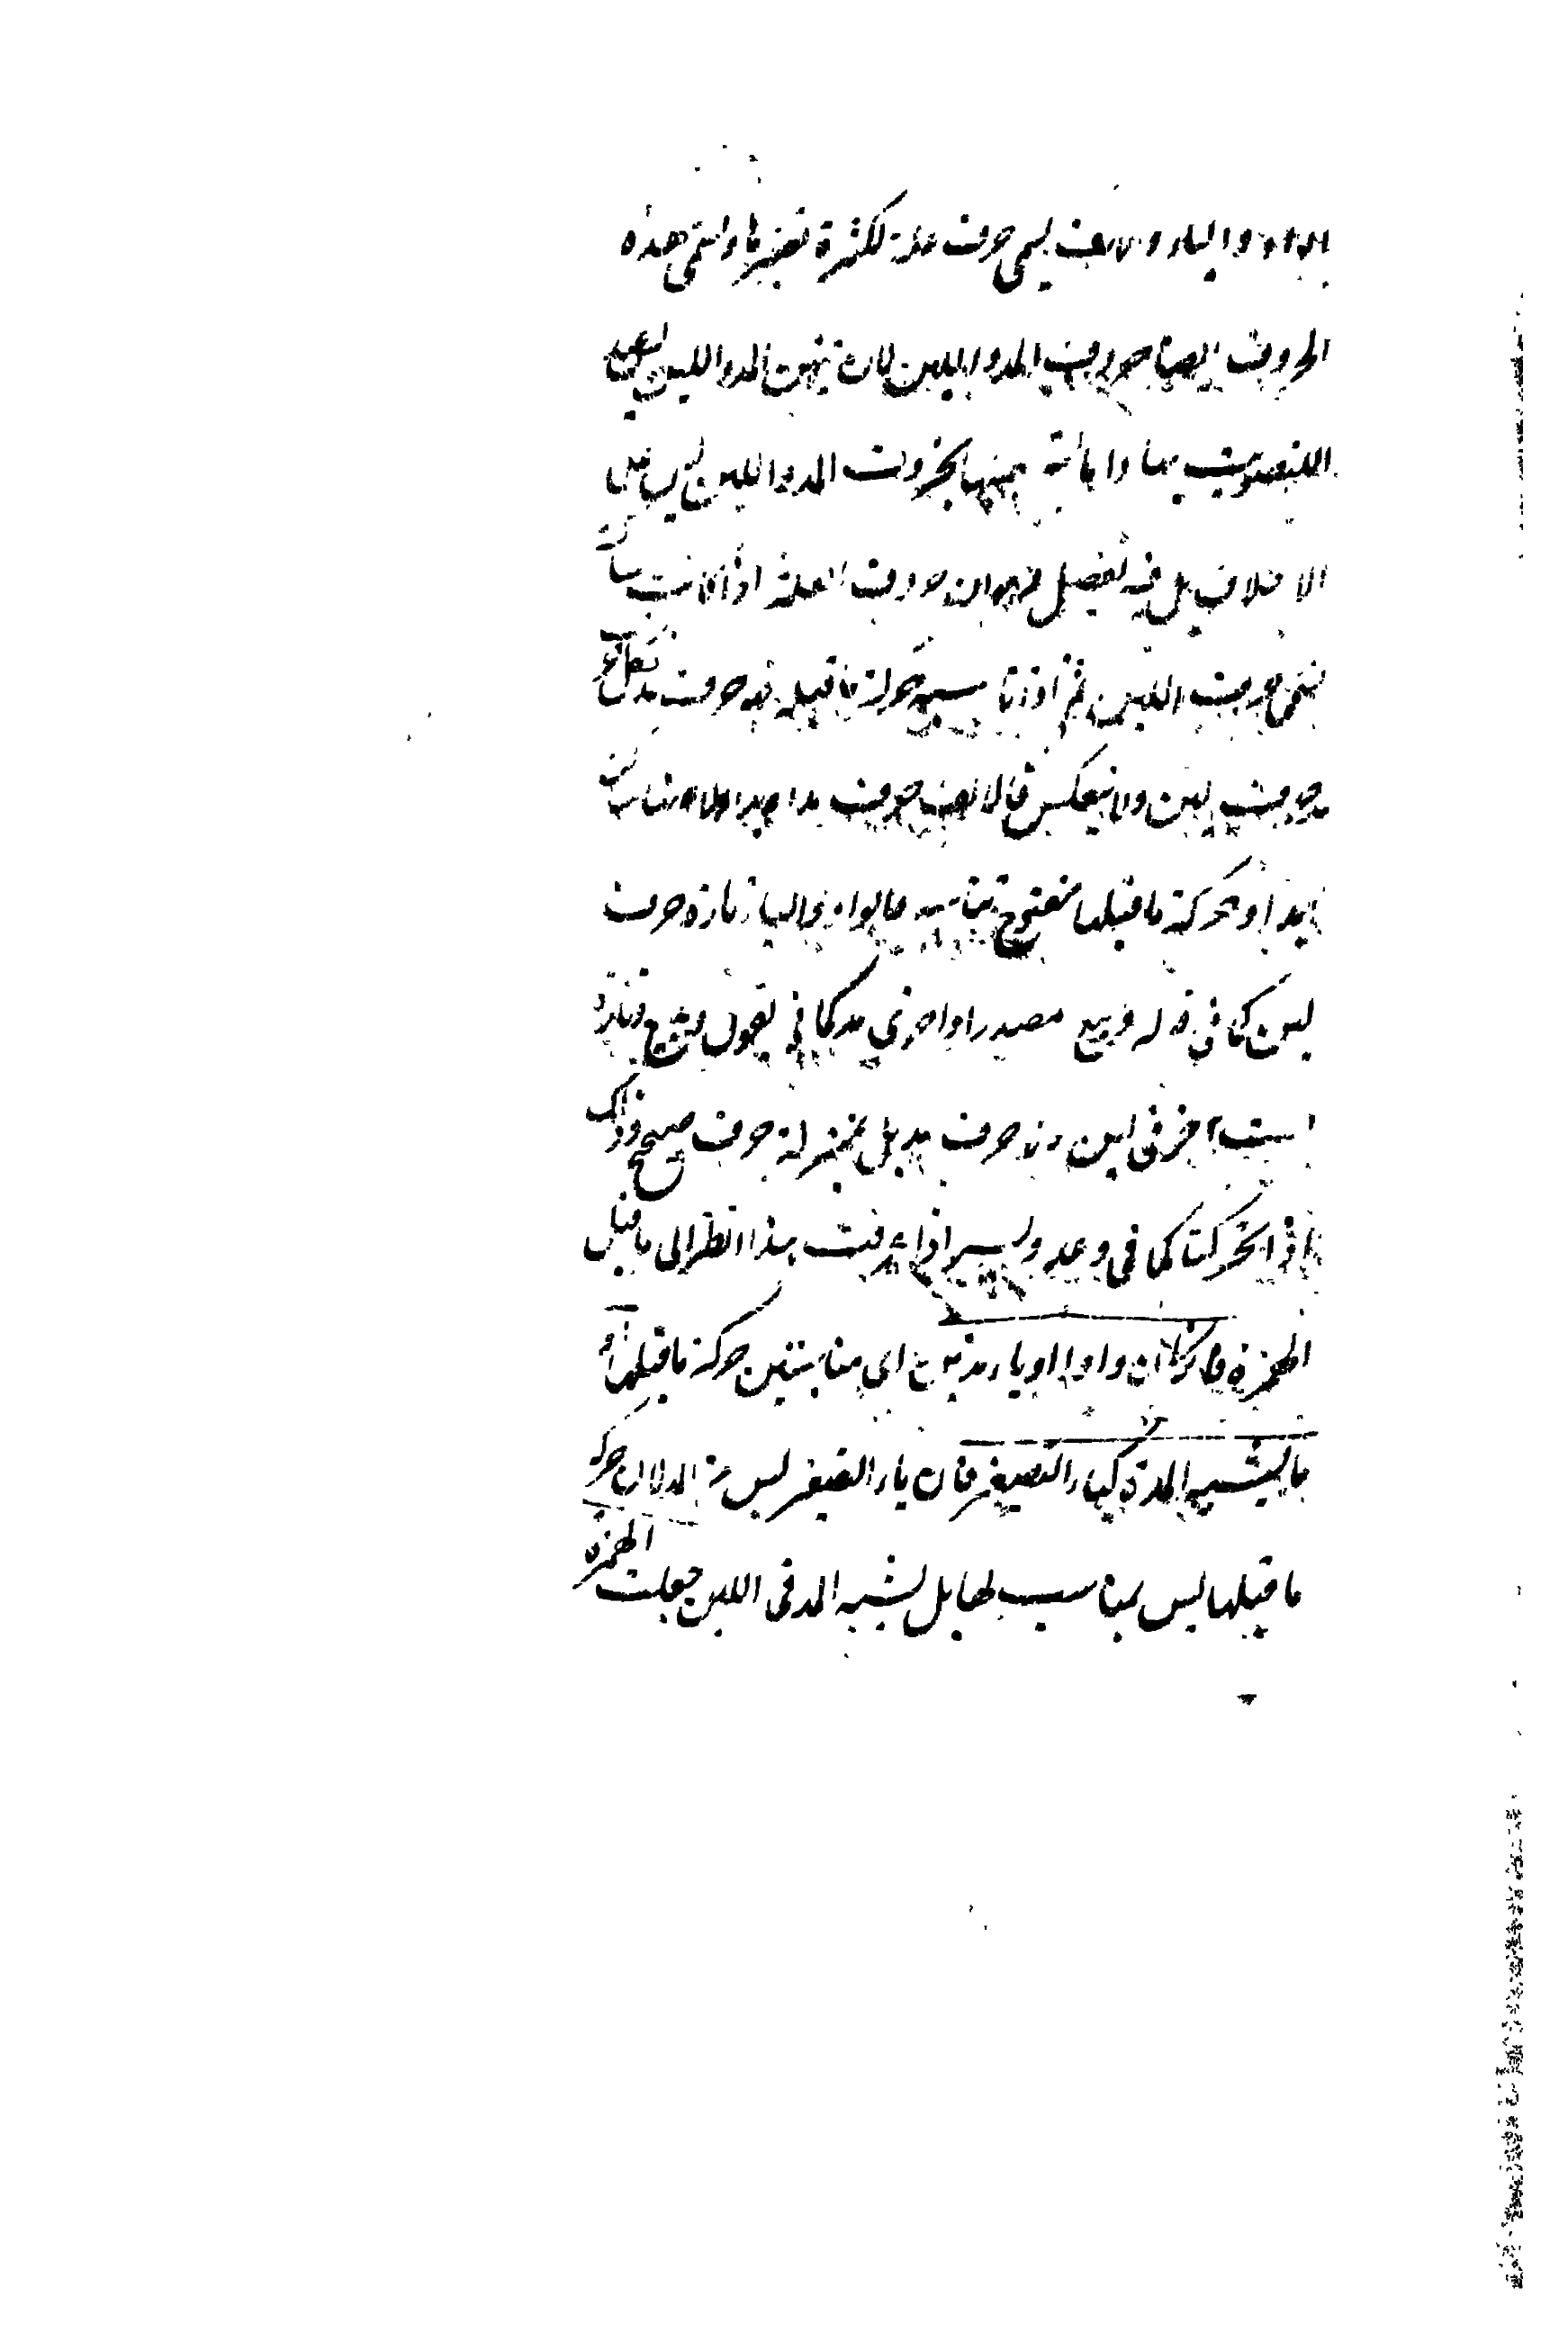 الواو والياء والالف يسمى حروف علة لكثرة تغيرها وتسمى هذه
الحروف ايضا حروف المد واللين لان فيهن المد واللين
بها
المد واللين ليس على
الاطلاق بل فيه تفصيل فهو ان حروف العلة اذا كانت ساكنة
تسمى حروف اللين ثم اذا ناسبه حركة ما قبله فهو حروف مد فكل
حروف لين ولا ينعكس فالالف حروف مد ابدا
ابدا وحركة ما قبلها مفتوح تناسبه فالواو والياء تارة حروف
لين كما في قول وبيع مصدرا واخرى مد كما في يقول يبيع وتارة
ليستا حرفى لين ولا حروف مد بل بمنزلة حرف صحيح وذلك
اذا تحركتا كما في وعد ويسر اذا عرفت هذا انظر الى ما قبل
الهمزة فان كان واوا او ياء مدتين اى مناسبتين حركة ما قبلها او
ما يشبه المدة كياء التصغير فان ياء التصغير ليس مد لان حركة
ما قبلها ليس بمناسب لها بل يشبه المد فى اللين جعلت الهمزة